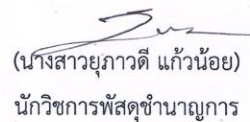 (นางสาวยุภาวดี แก้วน้อย)
นักวิชการพัสดุชำนาญการ